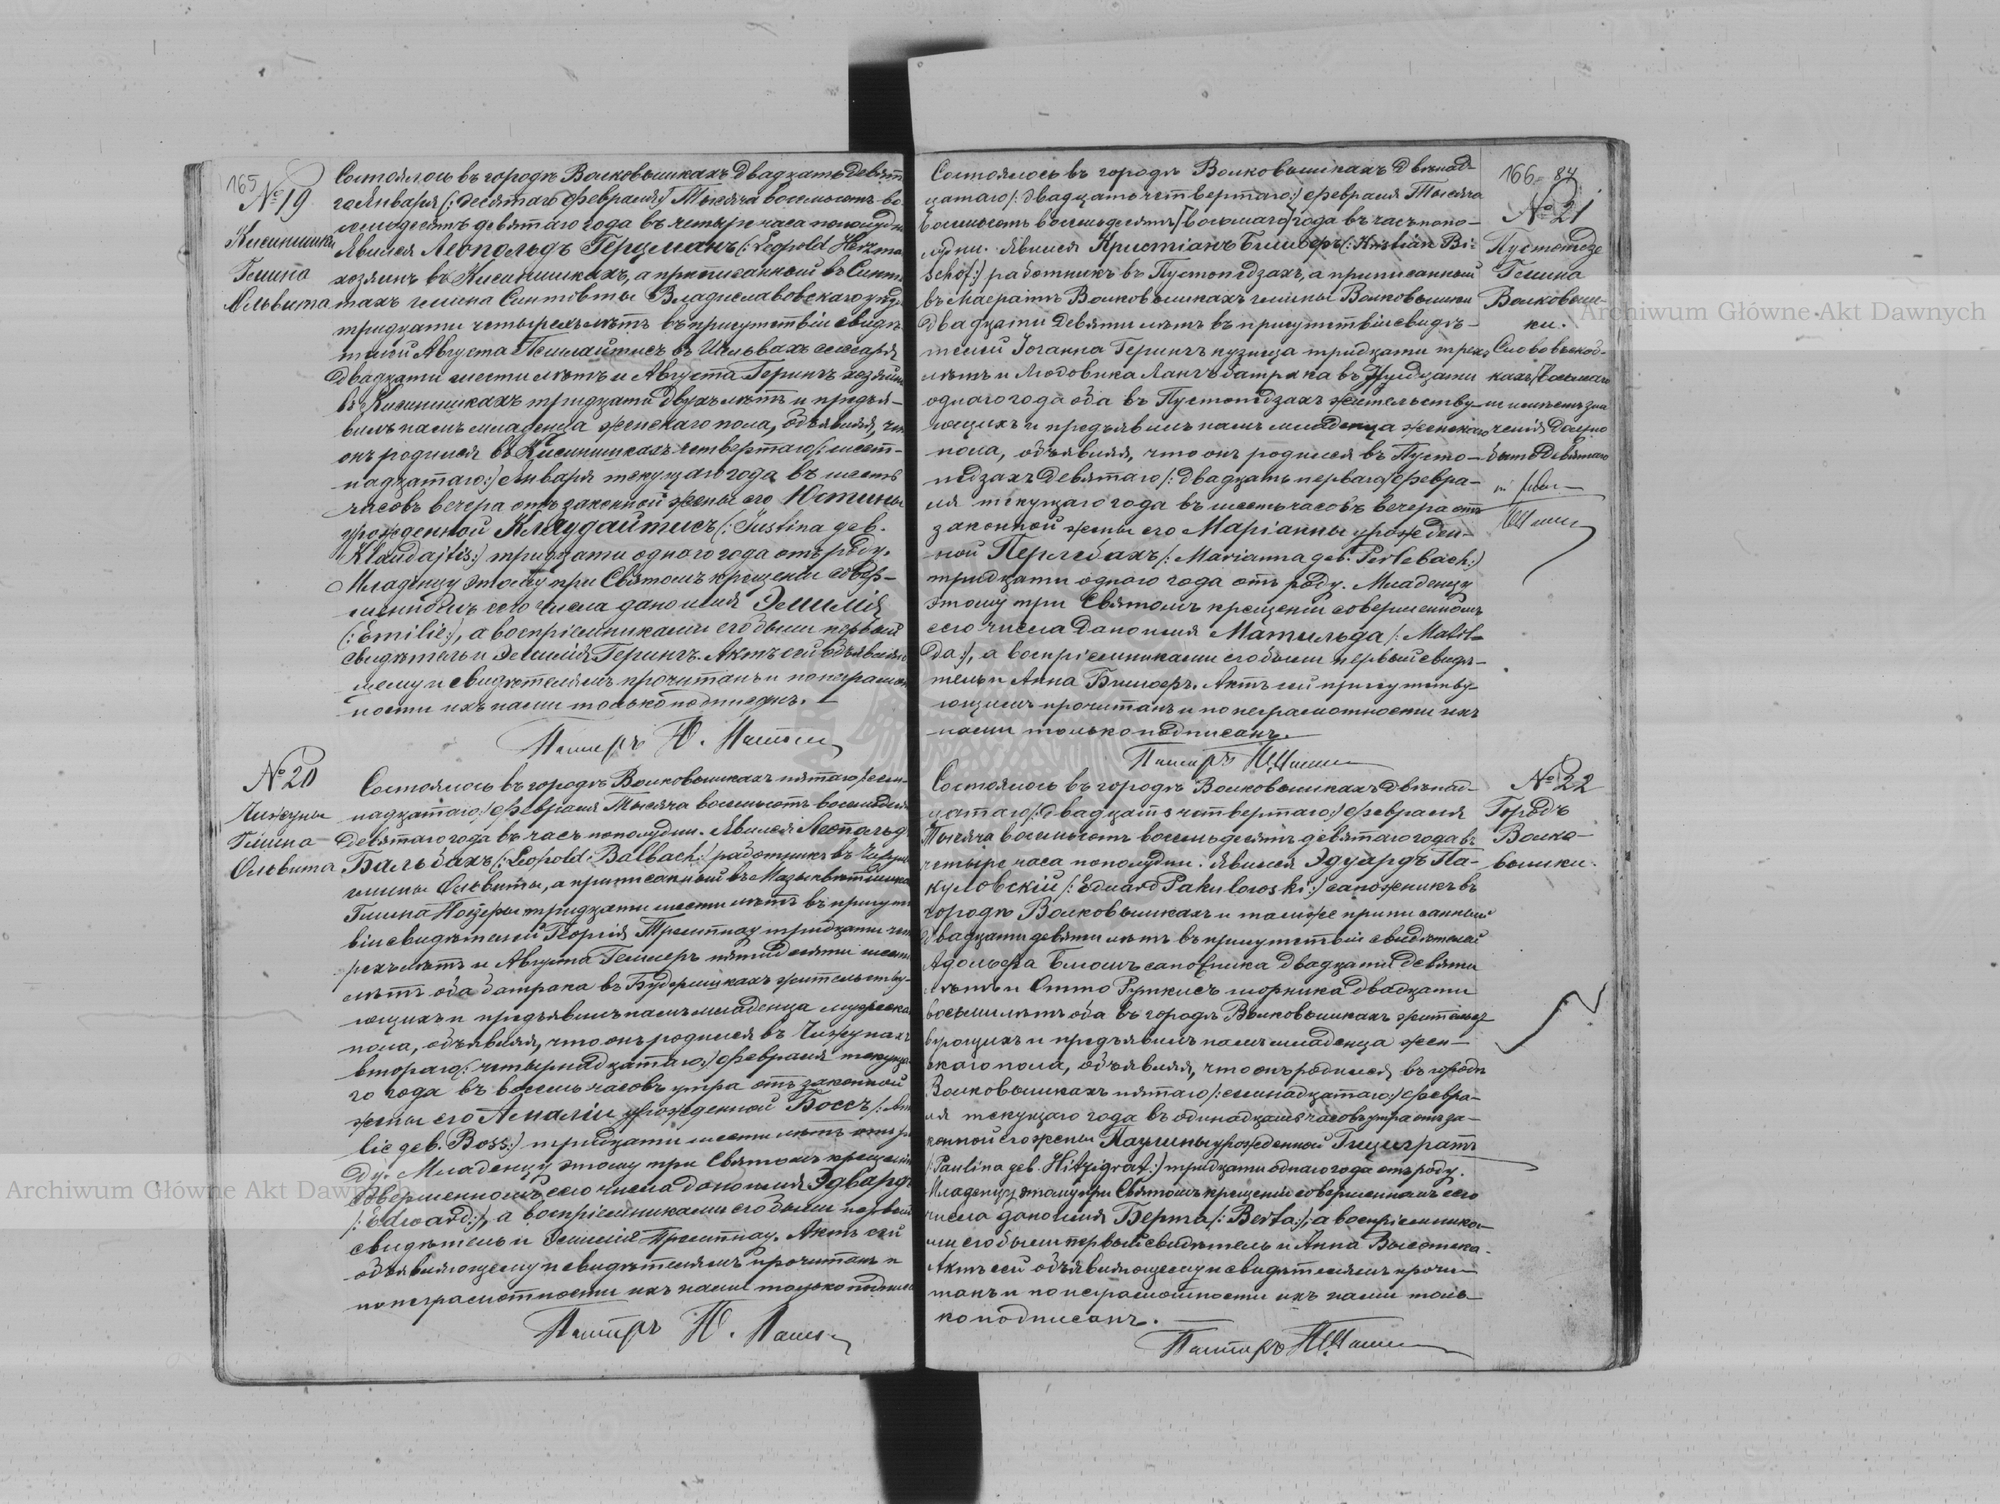 165
№ 19
Кисинишки
Гмина
Ольвита
Состоялось въ городѣ Волковышкахъ двадцать девят
го Января /: десятаго Февраля :/ Тысяча восемьсотъ во-
семьдесятъ девятаго года въ четыре часа пополудни
Явился Леопольдъ Герцманъ /: Leopold Hertzma
хозяинъ въ Кисинишкахъ, а приписанный въ Синто
тахъ гмины Синтовты Владиславовскаго уѣзда
тридцати четырехъ лѣтъ въ присутствіи свидѣ
телей Августа въ Ильвахъ слесаря
двадцати шести лѣтъ и Августа Герингъ хозяина
въ Кисинишкахъ тридцати двухъ лѣтъ и предъя-
вилъ намъ младенца женскаго пола, объявляя, что
онъ родился въ Кисинишкахъ четвертаго /: шест-
надцатаго :/ Января текущаго года въ шесть
часовъ вечера отъ законной жены его Юстины
урожденной Клаудайтисъ /: Justina geb.
Klaudajtis :/ тридцати одного года отъ роду.
Младенцу этому при Святомъ крещеніи совер-
шенномъ сего числа дано имя Эмилія
/: Emilie :/, а воспріемниками его были первый
свидѣтель и Эмилія Герингъ. Актъ сей объявляю
щему и свидѣтелямъ прочитанъ и по неграмот
ности ихъ нами только подписанъ.
Пасторъ
№ 20
Чижуны
Гмина
Ольвита
Состоялось въ городѣ Волковышкахъ пятаго /: сем-
надцатаго :/ Февраля Тысяча восемьсотъ восемьдесятъ
девятаго года въ часъ пополудни. Явился Леопольдъ
Бальбахъ /: Leopold Balbach :/ работникъ въ Чижунахъ
гмины Ольвиты, а приписанный въ
Гмина тридцати шести лѣтъ въ присутст
віи свидѣтелей Георгія Трептнау тридцати чет
рехъ лѣтъ и Августа Гейшеръ пятидесяти шести
лѣтъ оба батрака въ жительству-
ющихъ и предъявилъ намъ младенца мужеска
пола, объявляя, что онъ родился въ Чижунахъ
втораго /: четырнадцатаго :/ Февраля текуща
го года въ восемь часовъ утра отъ законной
жены его Амаліи урожденной Боссъ /: Ama
lie geb. Boss :/ тридцати шести лѣтъ отъ ро
ду. Младенцу этому при Святомъ крещеніи
совершенномъ сего числа дано имя Эдвардъ
/: Edward :/, а воспріемниками его были первый
свидѣтель и Эмилія Трептнау. Актъ сей
объявляющему и свидѣтелямъ прочитанъ и
по неграмотности ихъ нами только подписанъ
Пасторъ
Состоялось въ городѣ Волковышкахъ двѣнад-
цатаго /: двадцать четвертаго :/ Февраля Тысяча
восемьсотъ восемьдесятъ [восьмаго] года въ часъ попо-
лудни. Явился Христіанъ Бишофъ /: Kristian Bi-
schof :/ работникъ въ Пустопѣдзахъ, а приписанный
въ Маератѣ Волковышкахъ гмины Волковышки
двадцати девяти лѣтъ въ присутствіи свидѣ-
телей Іоганна Герингъ кузнеца тридцати трехъ
лѣтъ и Людовика Лангъ батрака въ тридцати
одного года оба въ Пустопѣдзахъ жительству-
ющихъ и предъявилъ намъ младенца женскаго
пола, объявляя, что онъ родился въ Пусто-
пѣдзахъ девятаго /: двадцать перваго :/ Февра-
ля текущаго года въ шесть часовъ вечера отъ
законной жены его Маріанны урожден-
ной Перлебахъ /: Marianna geb. Perlebach :/
тридцати одного года отъ роду. Младенцу
этому при Святомъ крещеніи совершенномъ
сего числа дано имя Матильда /: Matil-
da :/, а воспріемниками его были первый свидѣ-
тель и Анна Бишофъ. Актъ сей присутству-
ющимъ прочитанъ и по неграмотности ихъ
нами только подписанъ.
Пасторъ
166 84
№ 21
Пустопѣдзе
Гмина
Волковыш-
ки.
Слово въ скоб-
кахъ [восьмаго]
не имѣетъ зна
ченія должно
быть девятаго
Состоялось въ городѣ Волковышкахъ двѣнад-
цатаго /: двадцать четвертаго :/ Февраля
Тысяча восемьсотъ восемьдесятъ девятаго года въ
четыре часа пополудни. Явился Эдуардъ Па-
куловскій /: Eduard Pakulowski :/ сапожникъ въ
городѣ Волковышкахъ и тамже приписанный
двадцати девяти лѣтъ въ присутствіи свидѣтелей
Адольфа Блюмъ сапожника двадцати девяти
лѣтъ и Отто Руткисъ шорника двадцати
восьми лѣтъ оба въ городѣ Волковышкахъ жительст
вующихъ и предъявилъ намъ младенца жен-
скаго пола, объявляя, что онъ родился въ городѣ
Волковышкахъ пятаго /: семнадцатаго :/ Февра-
ля текущаго года въ одинадцать часовъ утра отъ за-
конной его жены Паулины урожденной Гицигратъ
/: Paulina geb. Hitzigrat :/ тридцати одного года отъ роду.
Младенцу этому при Святомъ крещеніи совершенномъ сего
числа дано имя Берта /: Berta :/, а воспріемника-
ми его были первый свидѣтель и Анна Высотска.
Актъ сей объявляющему и свидѣтелямъ прочи-
танъ и по неграмотности ихъ нами толь-
ко подписанъ.
Пасторъ
№ 22
Городъ
Волко-
вышки.
Archiwum Główne Akt Dawnych
Archiwum Główne Akt Dawnych